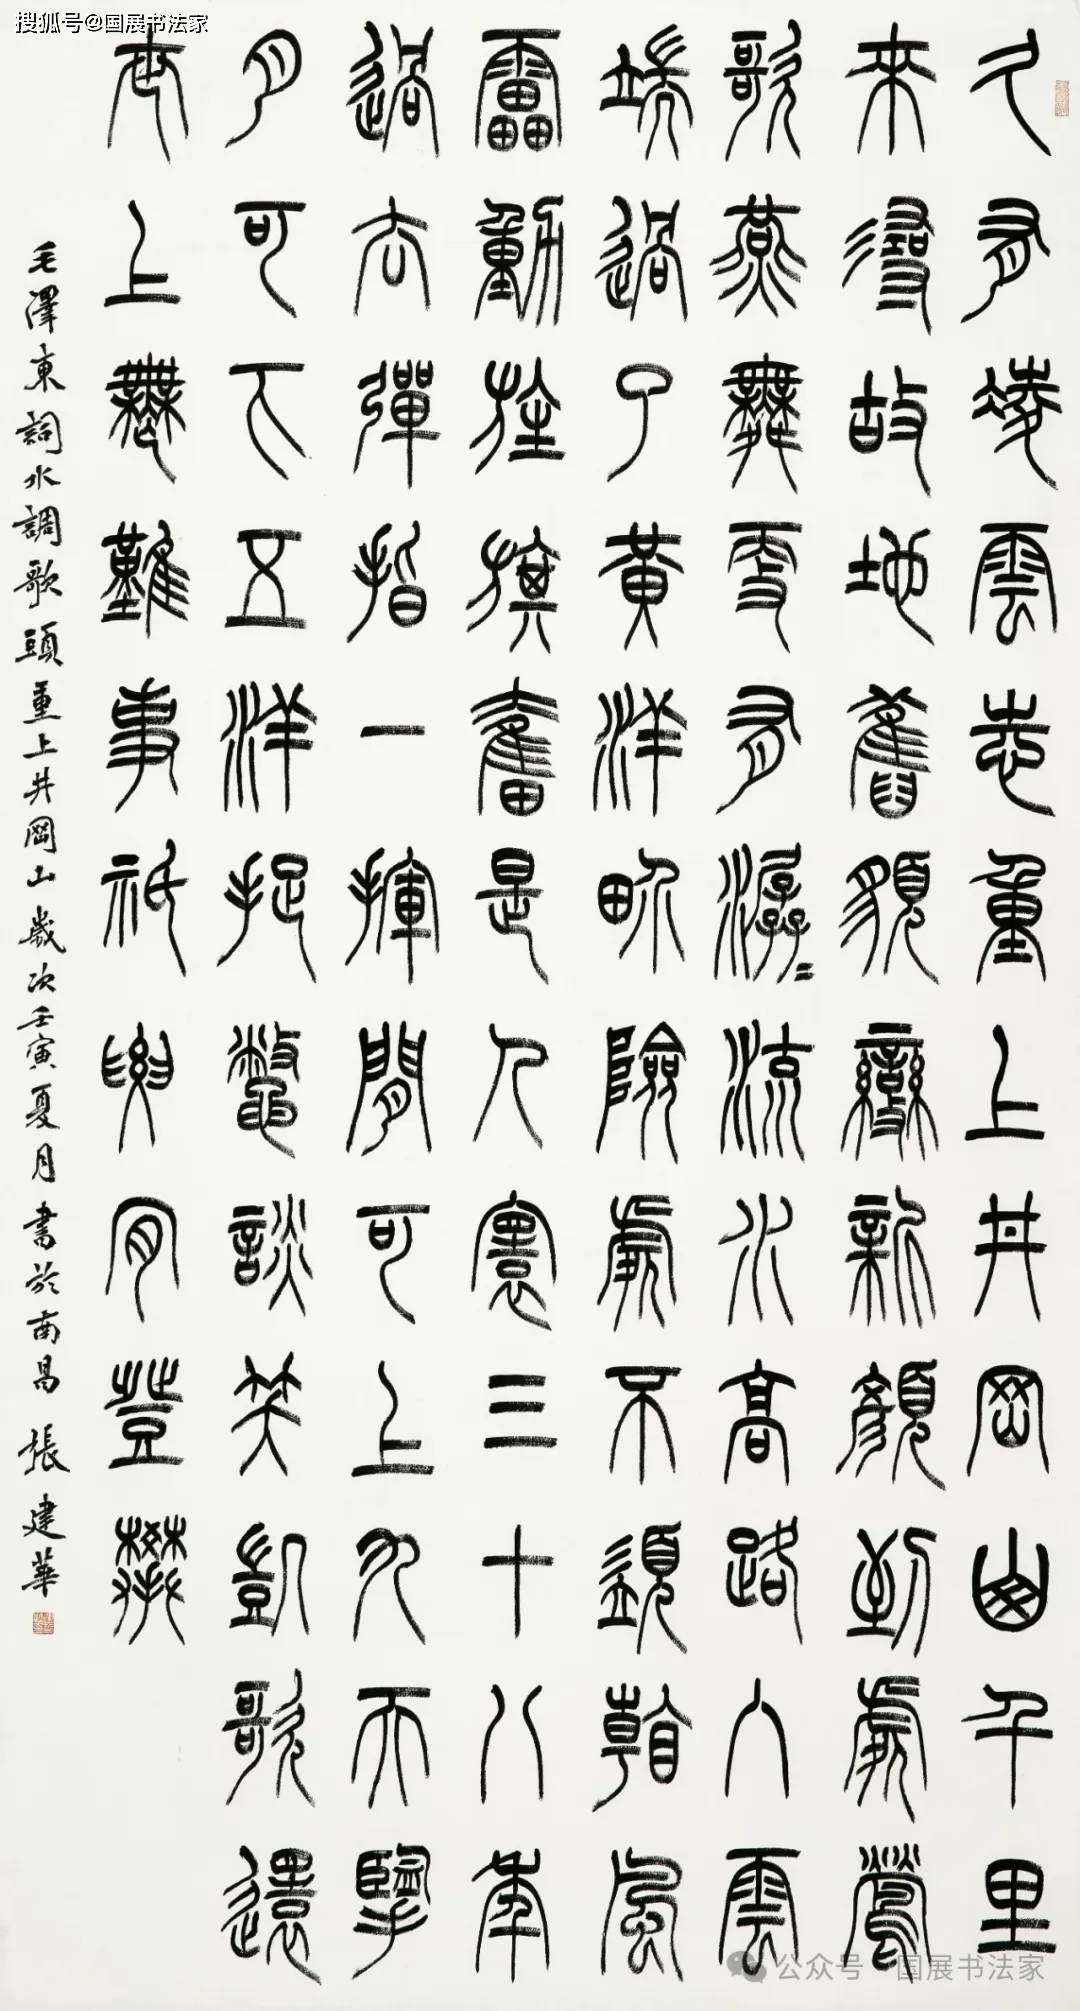 搜狐号@国展书法家
久有凌雲志重上井岡山千里
來尋故地舊貌變新顏到處鶯
歌燕舞更有潺潺流水高路入雲
端過了黃洋畍險處不須看風
雷動旌旗奮是人寰三十八年
過去彈指一揮間可上九天攬
月可下五洋捉鱉談笑凱歌還
世上無難事祇要肯登攀
毛澤東詞水調歌頭重上井岡山歲次壬寅夏月書於南昌 張建華
公众号 · 国展书法家